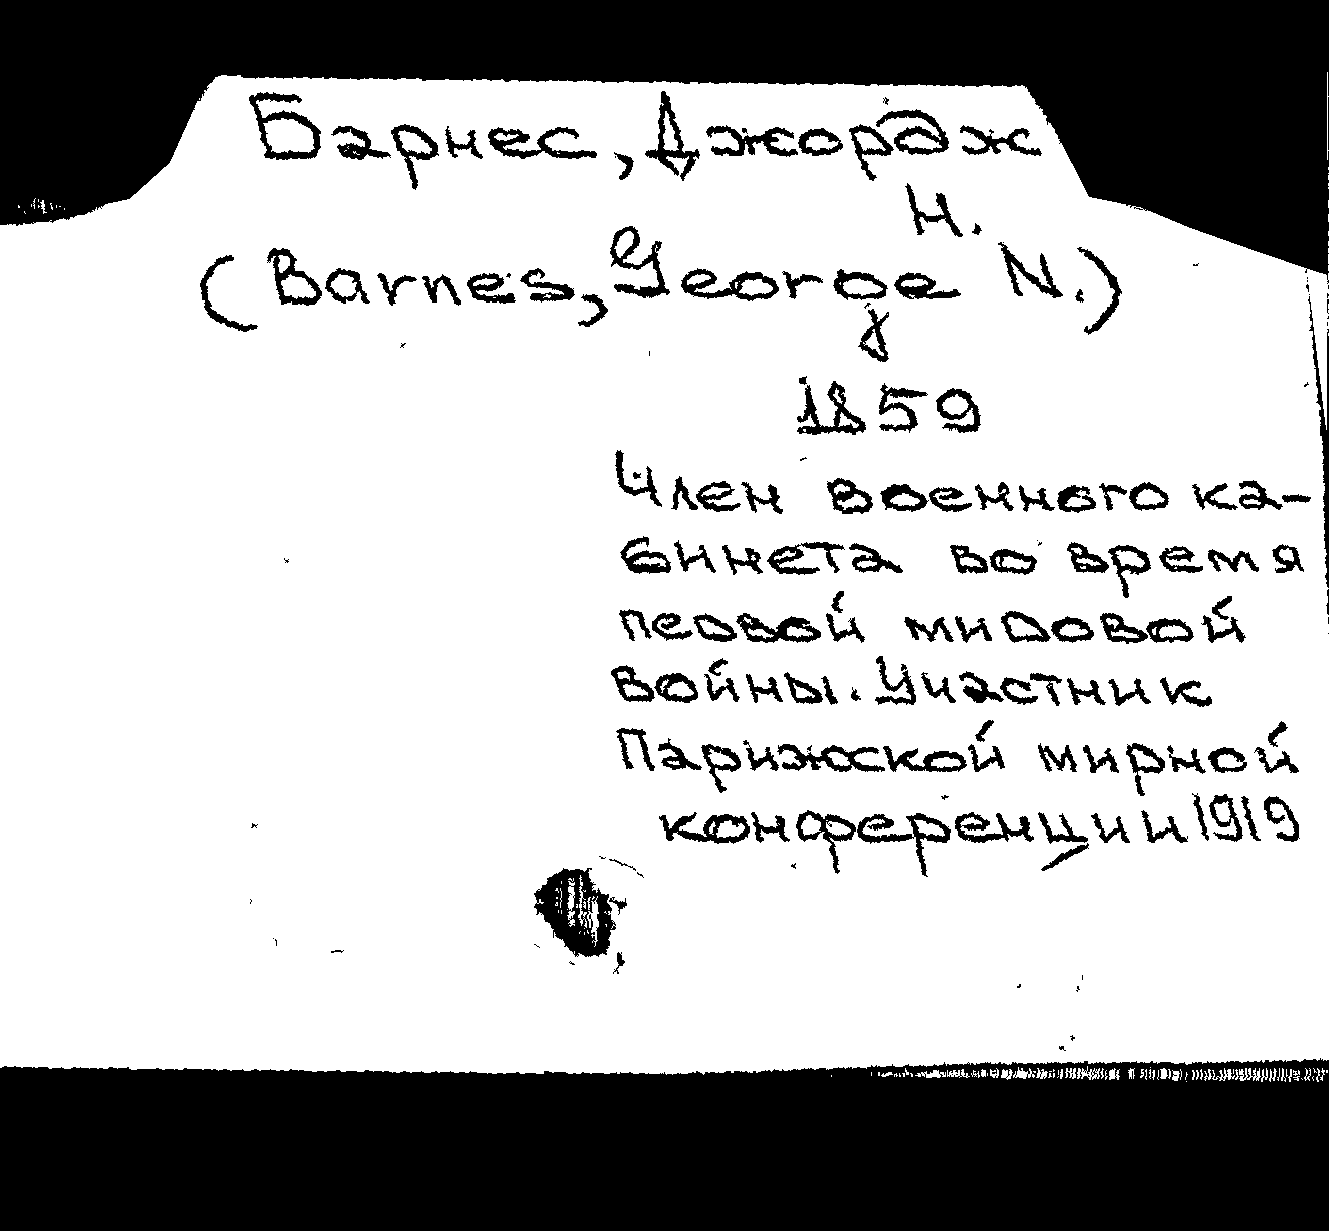 Барнес, Джордж
Н.
(Barnes, George N.)
1859
Член военного ка-
бинета во время
первой мировой
войны. Участник
Парижской мирной
конференции 1919